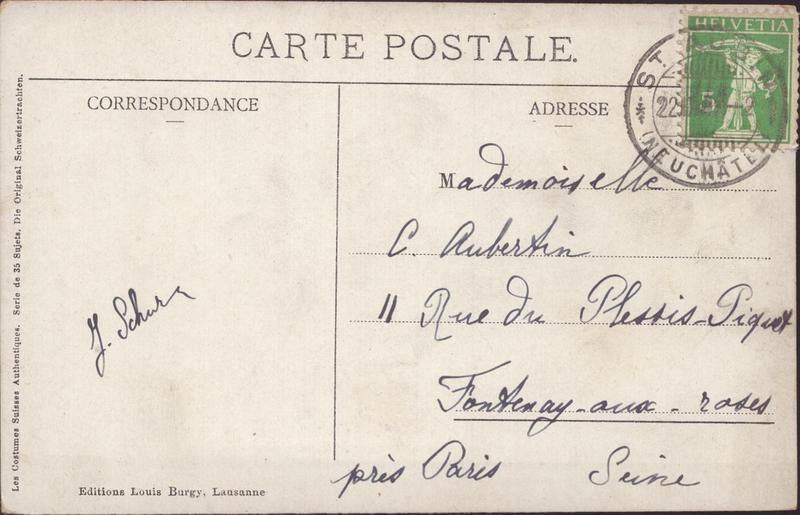 CARTE POSTALE.
HELVETIA
5
ST.
22
(NEUCHÂTEL)
CORRESPONDANCE
ADRESSE
Mademoiselle
C. Aubertin
11 Rue du Plessis-Piquet
Fontenay-aux-roses
près Paris Seine
J. Schurr
Editions Louis Burgy, Lausanne
Les Costumes Suisses Authentiques. Serie de 35 Sujets. Die Original Schweizertrachten.